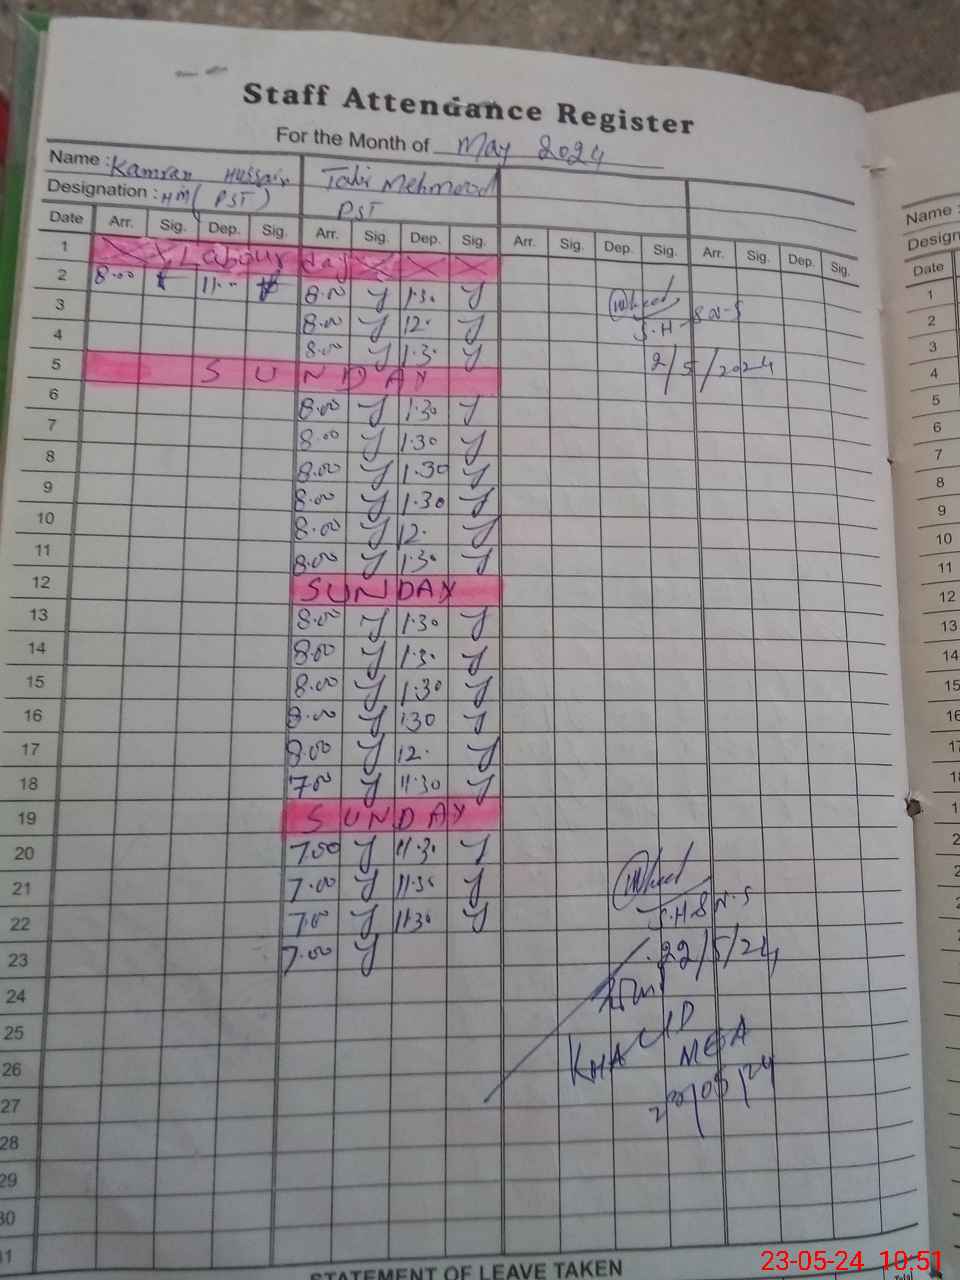 Staff Attendance Register
For the Month of May 2024
Name : Kamran Hussain Tahir Mehmood
Designation : HM ( PST ) PST
Date Arr. Sig. Dep. Sig. Arr. Sig. Dep. Sig. Arr. Sig. Dep. Sig. Arr. Sig. Dep. Sig.
1 X X Labour day X X X
2 8.00 11.. 8.00 1.30
3 8.00 12.
4 8.00 1.30
5 S U N D A Y
6 8.00 1.30
7 8.00 1.30
8 8.00 1.30
9 8.00 1.30
10 8.00 12.
11 8.00 1.30
12 SUNDAY
13 8.00 1.30
14 8.00 1.30
15 8.00 1.30
16 8.00 1.30
17 8.00 12.
18 7.00 11.30
19 S U N D A Y
20 7.00 11.30
21 7.00 11.30
22 7.00 11.30
23 7.00
24
25
26
27
28
29
30
31
2/5/2024
22/5/24
KHALID
MEA
STATEMENT OF LEAVE TAKEN
Total
Name :
Design
Date
1
2
3
4
5
6
7
8
9
10
11
12
13
14
15
16
17
23-05-24 10:51